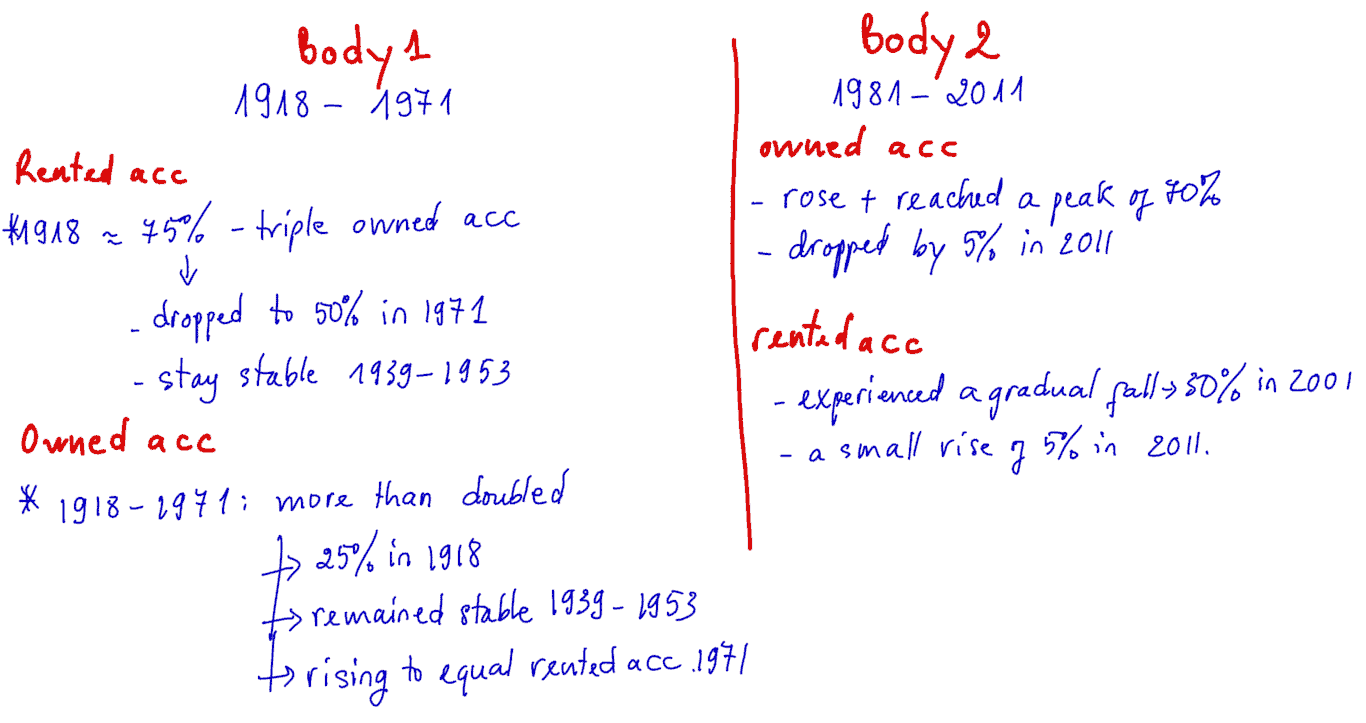 Body 1
1918 – 1971
Rented acc
*1918 ≈ 75% – triple owned acc
↓
- dropped to 50% in 1971
- stay stable 1939 – 1953
Owned acc
* 1918 – 1971: more than doubled
→ 25% in 1918
→ remained stable 1939 – 1953
→ rising to equal rented acc .1971
Body 2
1981 – 2011
owned acc
- rose + reached a peak of 70%
- dropped by 5% in 2011
rented acc
- experienced a gradual fall → 30% in 2001
- a small rise of 5% in 2011.